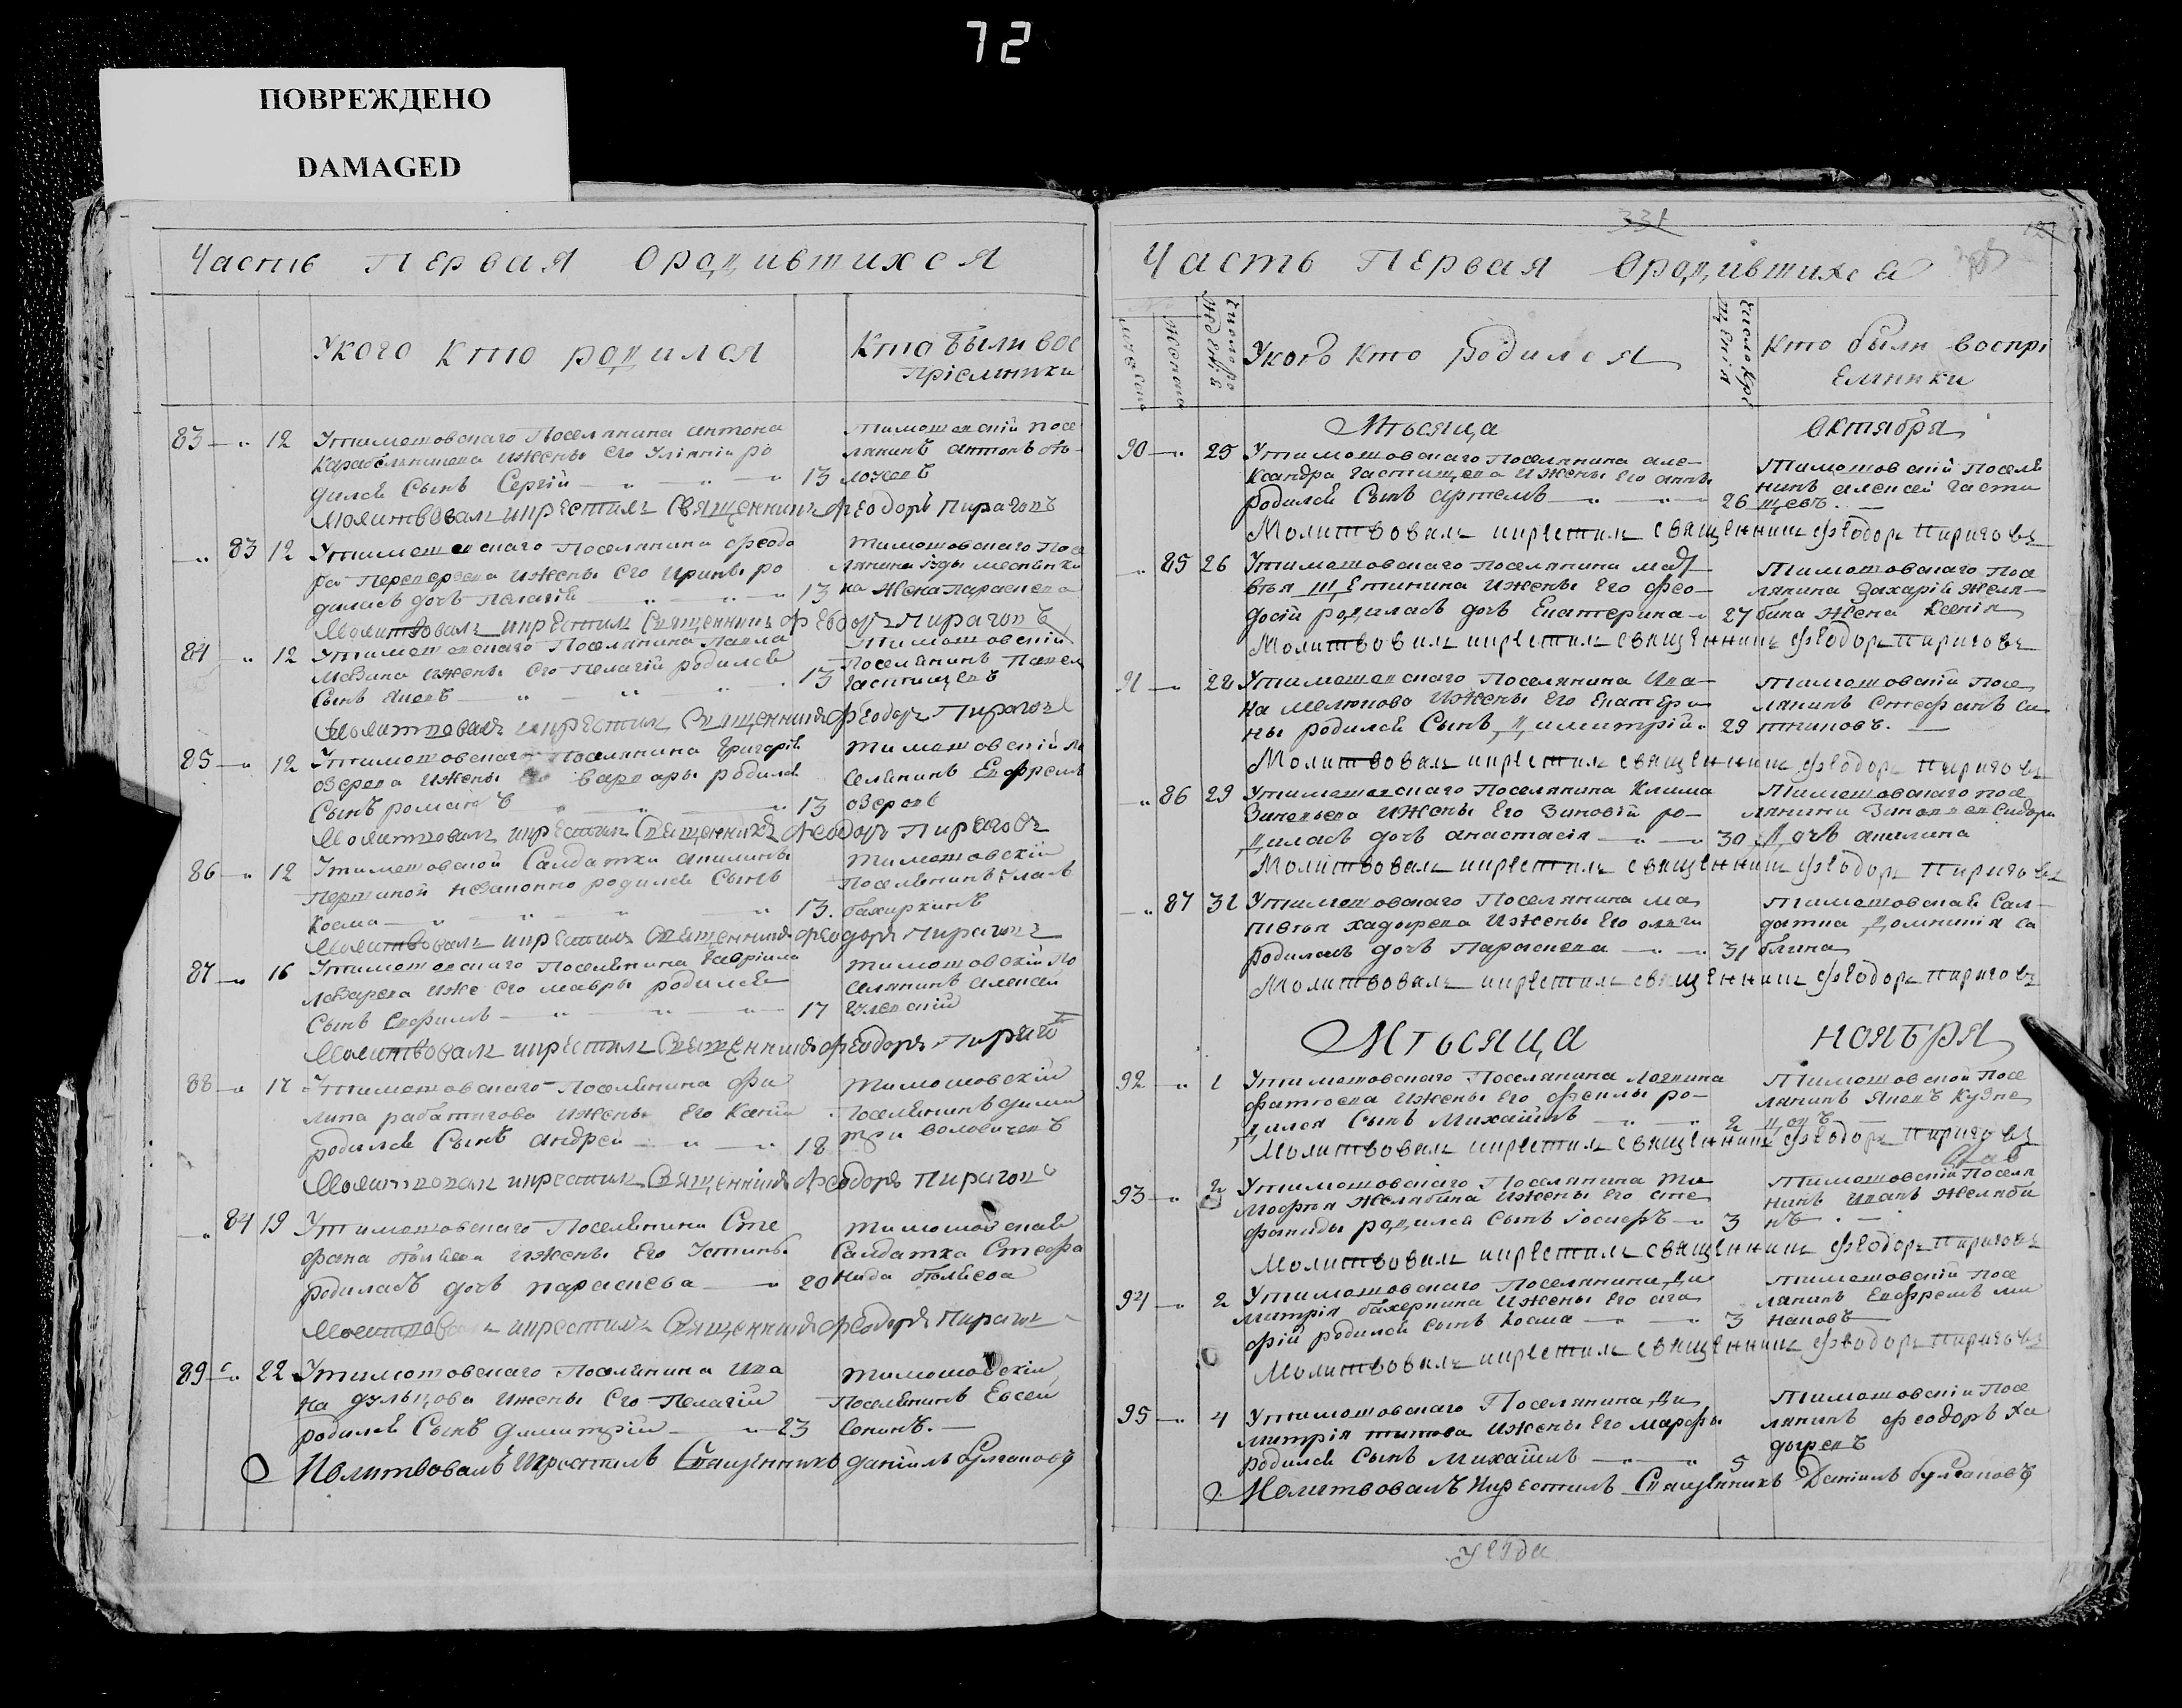 72
ПОВРЕЖДЕНО
DAMAGED
Часть Первая Ородившихся
Укого кто родился
Кто были вос
пріемники
83 — „ 12 Утимошовскаго Поселянина антона
ижены Его Уліяніи ро
дился Сынъ Сергій — „ — „ — „ 13
Тимошовскій посе
лянинъ антонъ
Молитвовалъ икрестилъ Священникъ Ѳеодоръ Пираговъ
„ 83 12 Утимошовскаго Поселянина Ѳеодо
ра ижены Его ирины ро
дилась дочь Пелагія — „ — „ 13
Тимошовскаго Посе
лянина
на жена параскева
Молитвовалъ икрестилъ Священникъ Ѳеодоръ Пираговъ
84 — „ 12 Утимошовскаго Поселянина Павла
ижены Его Пелагіи родился
Сынъ Яковъ — „ — „ — „ 13
Тимошовскій
Поселянинъ Павелъ
частищевъ
Молитвовалъ икрестилъ Священникъ Ѳеодоръ Пираговъ
85 — „ 12 Утимошовскаго Поселянина Григорія
озерова ижены Его варвары родился
Сынъ романъ „ — „ — „ 13
Тимошовскій По
селянинъ Евфремъ
озеровъ
Молитвовалъ икрестилъ Священникъ Ѳеодоръ Пираговъ
86 — „ 12 Утимошовской Салдатки акилины
незаконно родился Сынъ
Косма — „ „ „ „ 13.
Тимошовскій
Поселянинъ Власъ
бахиркинъ
Молитвовалъ икрестилъ Священникъ Ѳеодоръ Пираговъ
87 — „ 16 Утимошовскаго Поселянина Гавріила
лазарева иже Его мавры родился
Сынъ Евфимъ — „ — „ — „ 17
Тимошовскій По
селянинъ алексей
Молитвовалъ икрестилъ Священникъ Ѳеодоръ Пираго
88 — „ 17 Утимошовскаго Поселянина Фи
липа ижены Его Ксеніи
родился Сынъ андрей — „ — „ 18
Тимошовскій
Поселянинъ дими
три
Молитвовалъ икрестилъ Священникъ Ѳеодоръ Пираговъ
„ 84 19 Утимошовскаго Поселянина Сте
фана ижены Его Устиньи
родилась дочь параскева — „ 20
Тимошовская
Салдатка Стефа
нида
Молитвовалъ икрестилъ Священникъ Ѳеодоръ Пираговъ
89 — „ 22 Утимошовскаго Поселянина Ива
на дульцова ижены Его Пелагіи
родился Сынъ димитрій — „ 23
Тимошовскій
Поселянинъ Евсей
Сонинъ. —
Молитвовалъ Икрестилъ Священникъ даніилъ Булгаковъ
331
Часть Первая Ородившихся
Укого Кто Родился
Кто были воспрі
емники
Мѣсяца Октября
90 — „ 25 Утимошовскаго Поселянина але
ксандра частищева Ижены Его анны
родился Сынъ артемъ — „ — „ 26
Тимошовскій Поселя
нинъ алексей части
щевъ. —
Молитвовалъ икрестилъ священникъ Ѳеодоръ Пираговъ
„ 85 26 Утимошовскаго Поселянина мат
вѣя Щетинина Ижены Его Ѳео
досіи родилась дочь Екатерина — „ 27
Тимошовскаго Посе
лянина Захарія Желя
бина жена Ксенія
Молитвовалъ икрестилъ священникъ Ѳеодоръ Пираговъ
91 — „ 28 Утимошовскаго Поселянина Ива
на Мелюкова Ижены Его Екатери
ны родился Сынъ димитрій. 29
Тимошовскій Посе
лянинъ Стефанъ
Молитвовалъ икрестилъ священникъ Ѳеодоръ Пираговъ
„ 86 29 Утимошовскаго Поселянина Клима
Зиновьева Ижены Его Зиновіи ро
дилась дочь анастасія — „ — 30
Тимошовскаго посе
лянина
дочь акилина
Молитвовалъ икрестилъ священникъ Ѳеодоръ Пираговъ
„ 87 31 Утимошовскаго Поселянина ма
твѣя хадырева Ижены Его ольги
родилась дочь Параскева — „ — 31
Тимошовская Сал
датка домникія са
блина
Молитвовалъ икрестилъ священникъ Ѳеодоръ Пираговъ
Мѣсяца ноября
92 — „ 1 Утимошовскаго Поселянина логвина
Фатѣева Ижены Его Феклы ро
дился Сынъ Михаилъ — „ — „ 2
Тимошовской Посе
лянинъ Яковъ Кузне
цовъ —
Молитвовалъ икрестилъ священникъ Ѳеодоръ Пираговъ
93 — „ 2 Утимошовскаго Поселянина Ти
моѳея Желябина Ижены Его сте
фаниды родился сынъ Іосифъ — „ 3
Тимошовскій Поселя
нинъ Иванъ Желяби
нъ. —
Молитвовалъ икрестилъ священникъ Ѳеодоръ Пираговъ
94 — „ 2 Утимошовскаго Поселянина Ди
митрія бахеркина Ижены Его ага
фіи родился сынъ Косма — „ — „ 3
Тимошовскій Посе
лянинъ Евфремъ ми
наковъ —
Молитвовалъ икрестилъ священникъ Ѳеодоръ Пираговъ
95 — „ 4 Утимошовскаго Поселянина Ди
митрія титова Ижены Его марфы
родился Сынъ Михаилъ — „ — „ 5
Тимошовскій Посе
лянинъ Ѳеодоръ Ха
дыревъ
Молитвовалъ Икрестилъ Священникъ Даніилъ Булгаковъ